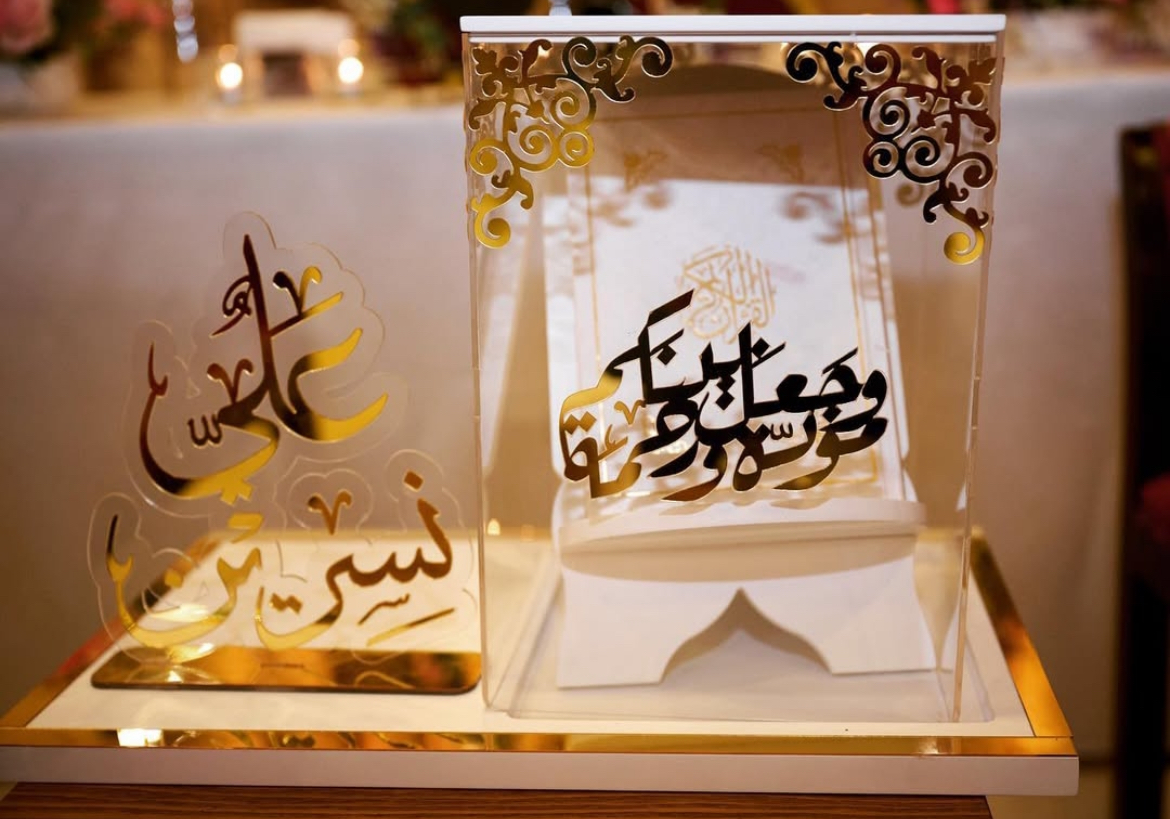 وجعل بينكم
مودة ورحمة
القرآن الكريم
علي
نسرين